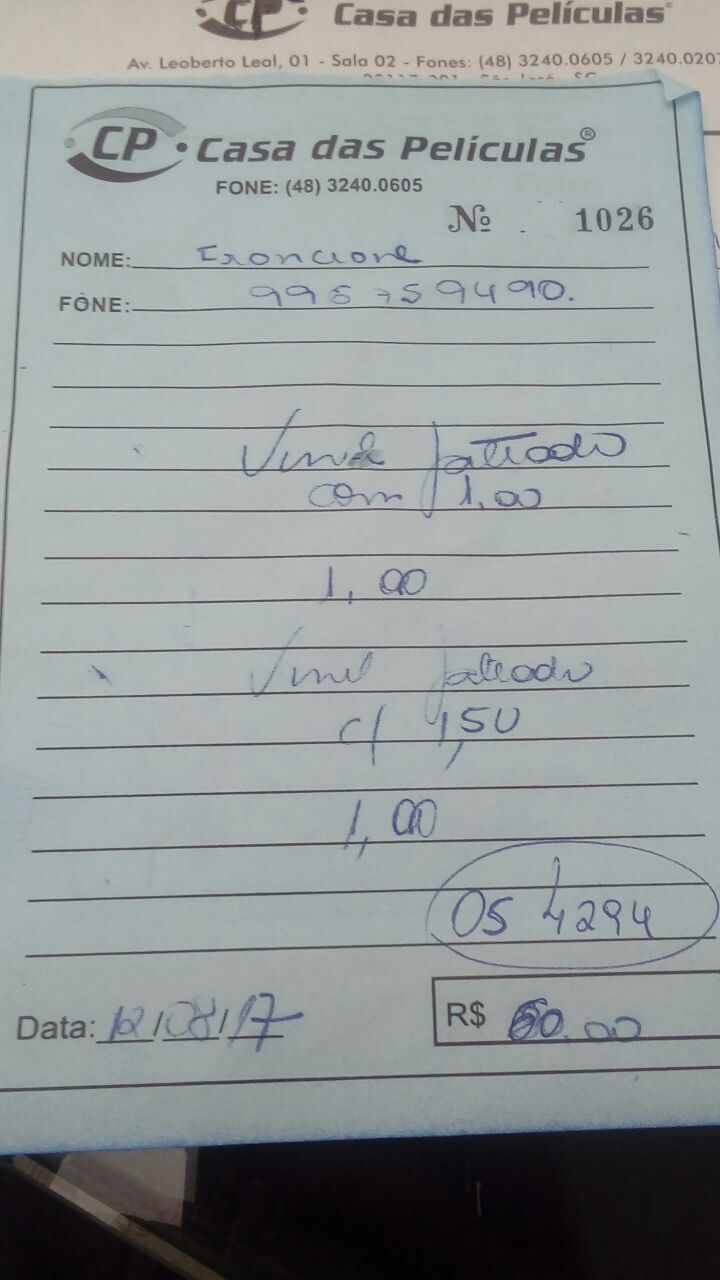 CP Casa das Películas
Av. Leoberto Leal, 01 - Sala 02 - Fones: (48) 3240.0605 / 3240.0207
CP Casa das Películas®
FONE: (48) 3240.0605
Nº 1026
NOME:
FONE: 996759490.
Vinil Jateado
com 1,00
1,00
Vinil Jateado
c/ 1,50
1,00
OS 4294
Data: 12/08/17
R$ 60.00